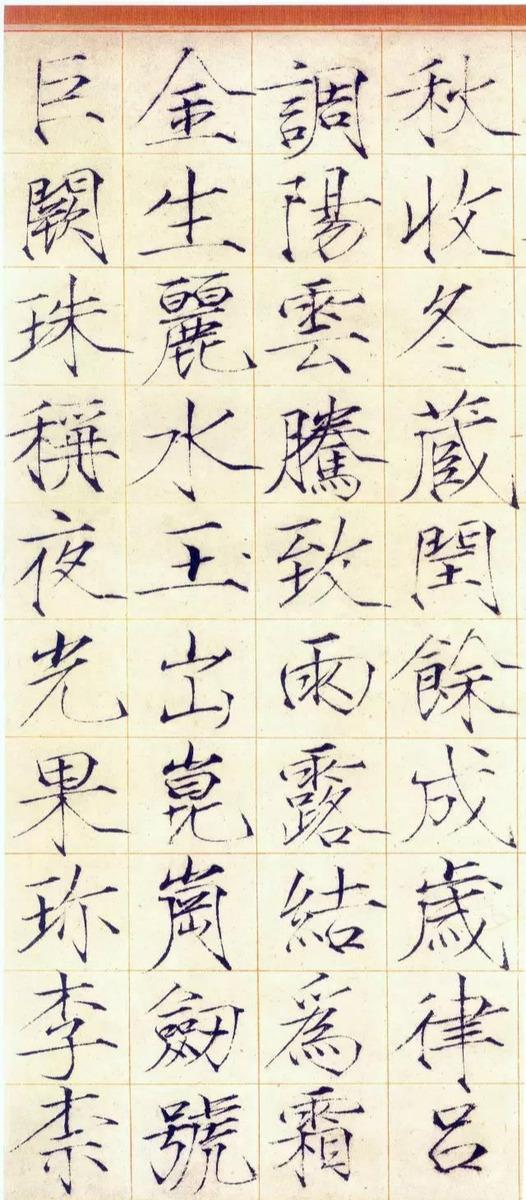 秋收冬蔵閏餘成歳律呂
調陽雲騰致雨露結爲霜
金生麗水玉出崑崗劒號
巨闕珠稱夜光果珎李柰